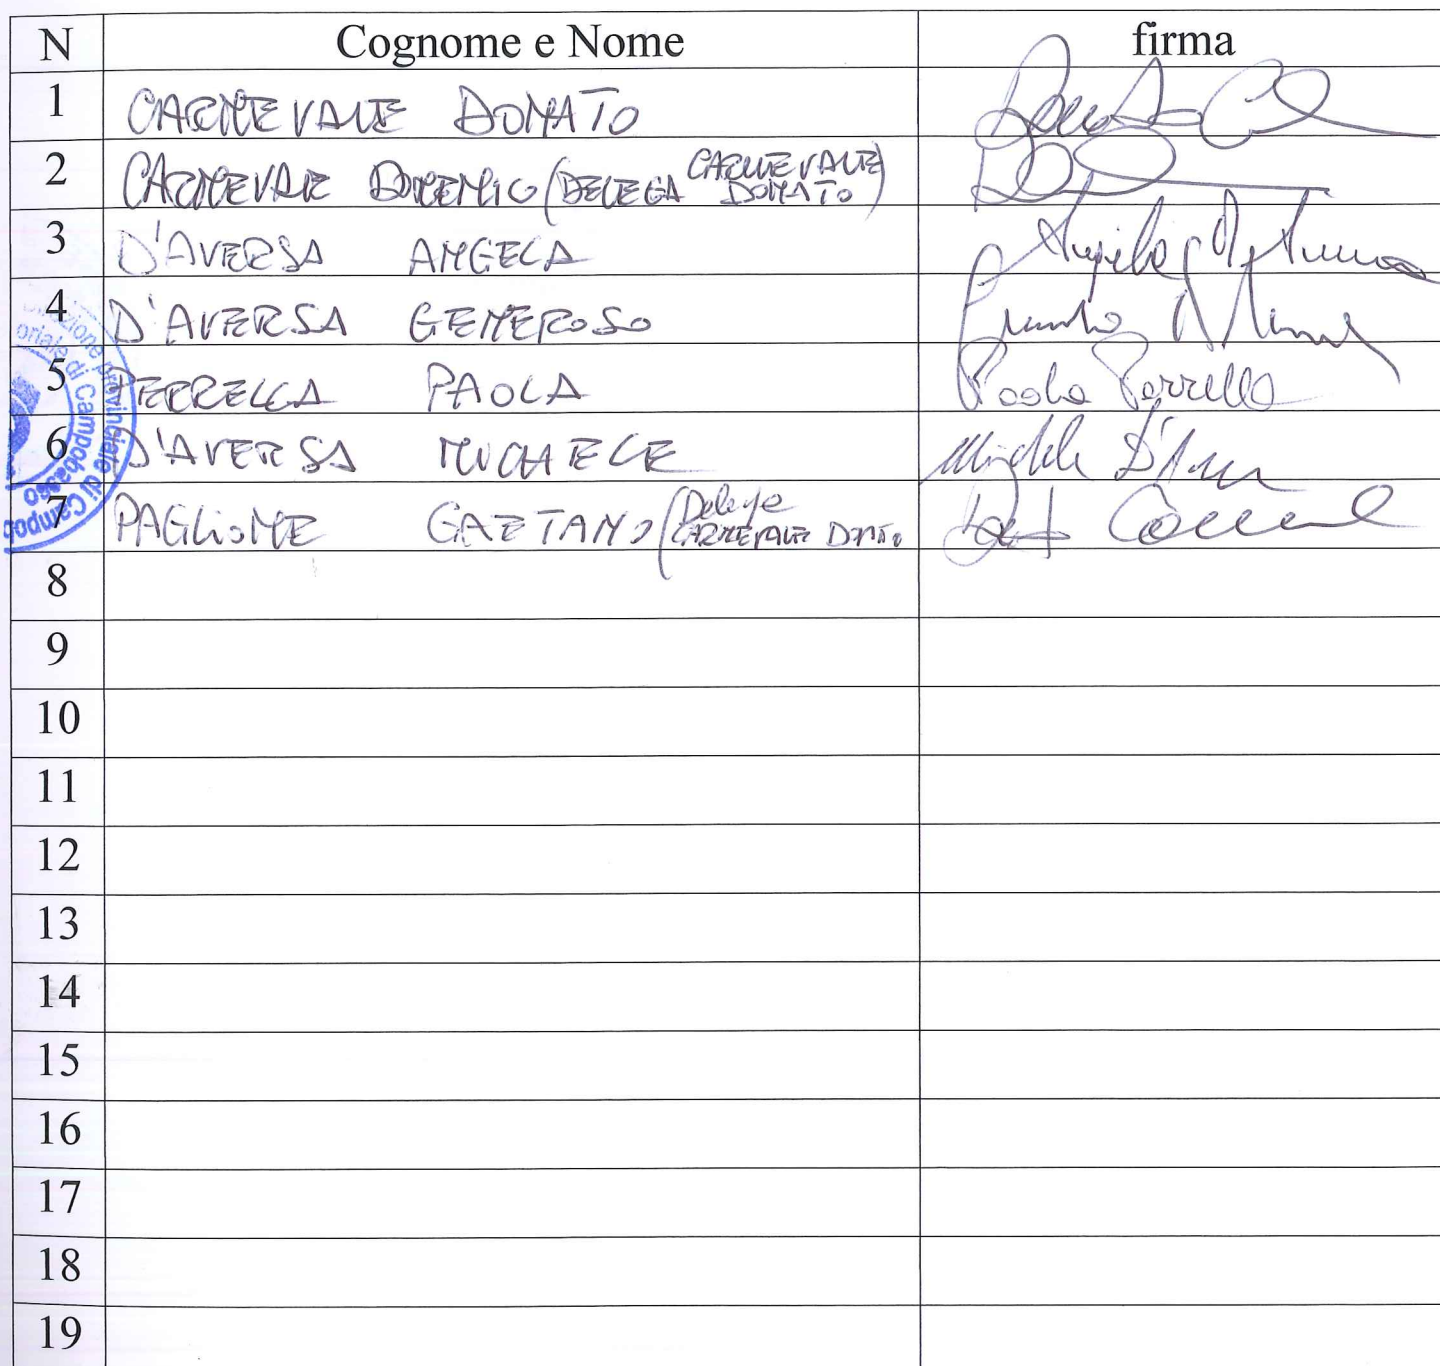 N Cognome e Nome firma
1 CARNEVALE DONATO
2 CARNEVALE DOMENICO (DELEGA CARNEVALE DONATO)
3 D'AVERSA ANGELA
4 D'AVERSA GENEROSO
5 PERRELLA PAOLA Paola Perrella
6 D'AVERSA MICHELE Michele D'Aversa
7 PAGLIONE GAETANO (Delega CARNEVALE DONATO
8
9
10
11
12
13
14
15
16
17
18
19
Direzione provinciale di Campobasso
oriale di Campobasso